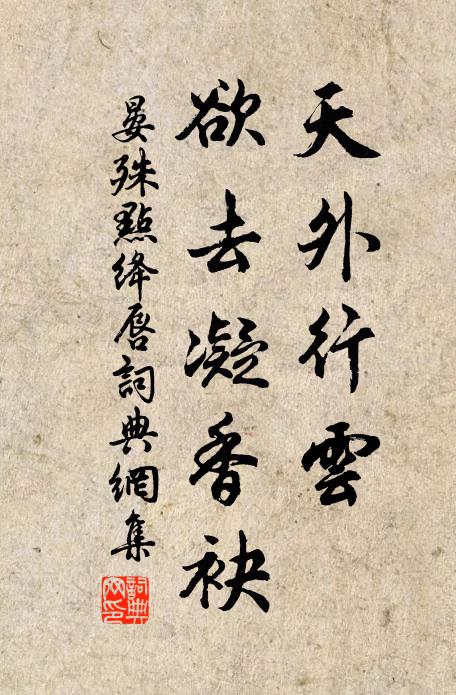 天外行雲
欲去凝香袂
晏殊點絳唇詞典網集
詞典網印